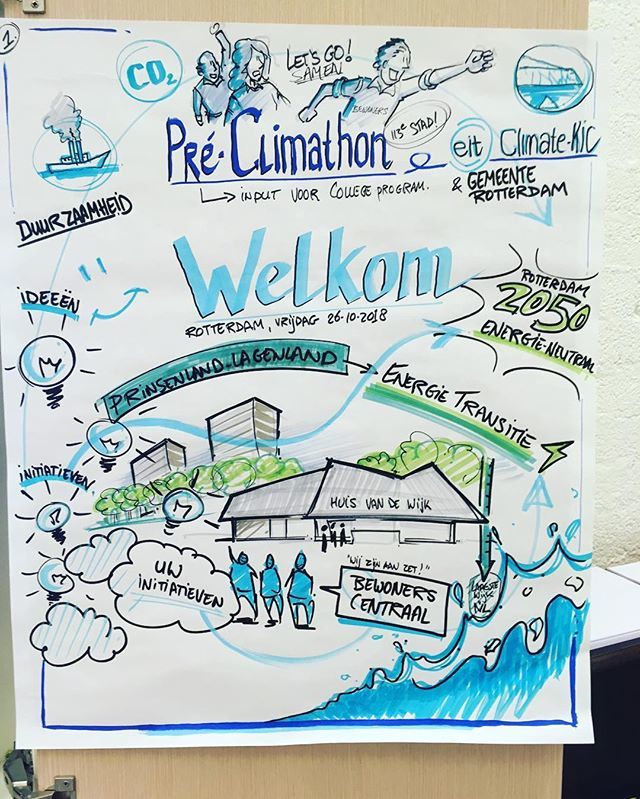 1
CO2
LET'S GO!
SAMEN
BEWONERS
113e STAD!
PRÉ-CLIMATHON
eit Climate-KIC
↳ INPUT VOOR COLLEGE PROGRAM.
& GEMEENTE
ROTTERDAM
DUURZAAMHEID
Welkom
ROTTERDAM, VRIJDAG 26-10-2018
IDEEËN
ROTTERDAM
2050
ENERGIE-NEUTRAAL
PRINSENLAND-LAGENLAND
ENERGIE TRANSITIE
INITIATIEVEN
HUIS VAN DE WIJK
UW
INITIATIEVEN
"WIJ ZIJN AAN ZET!"
BEWONERS
CENTRAAL
LAAGSTE
WIJK
NL